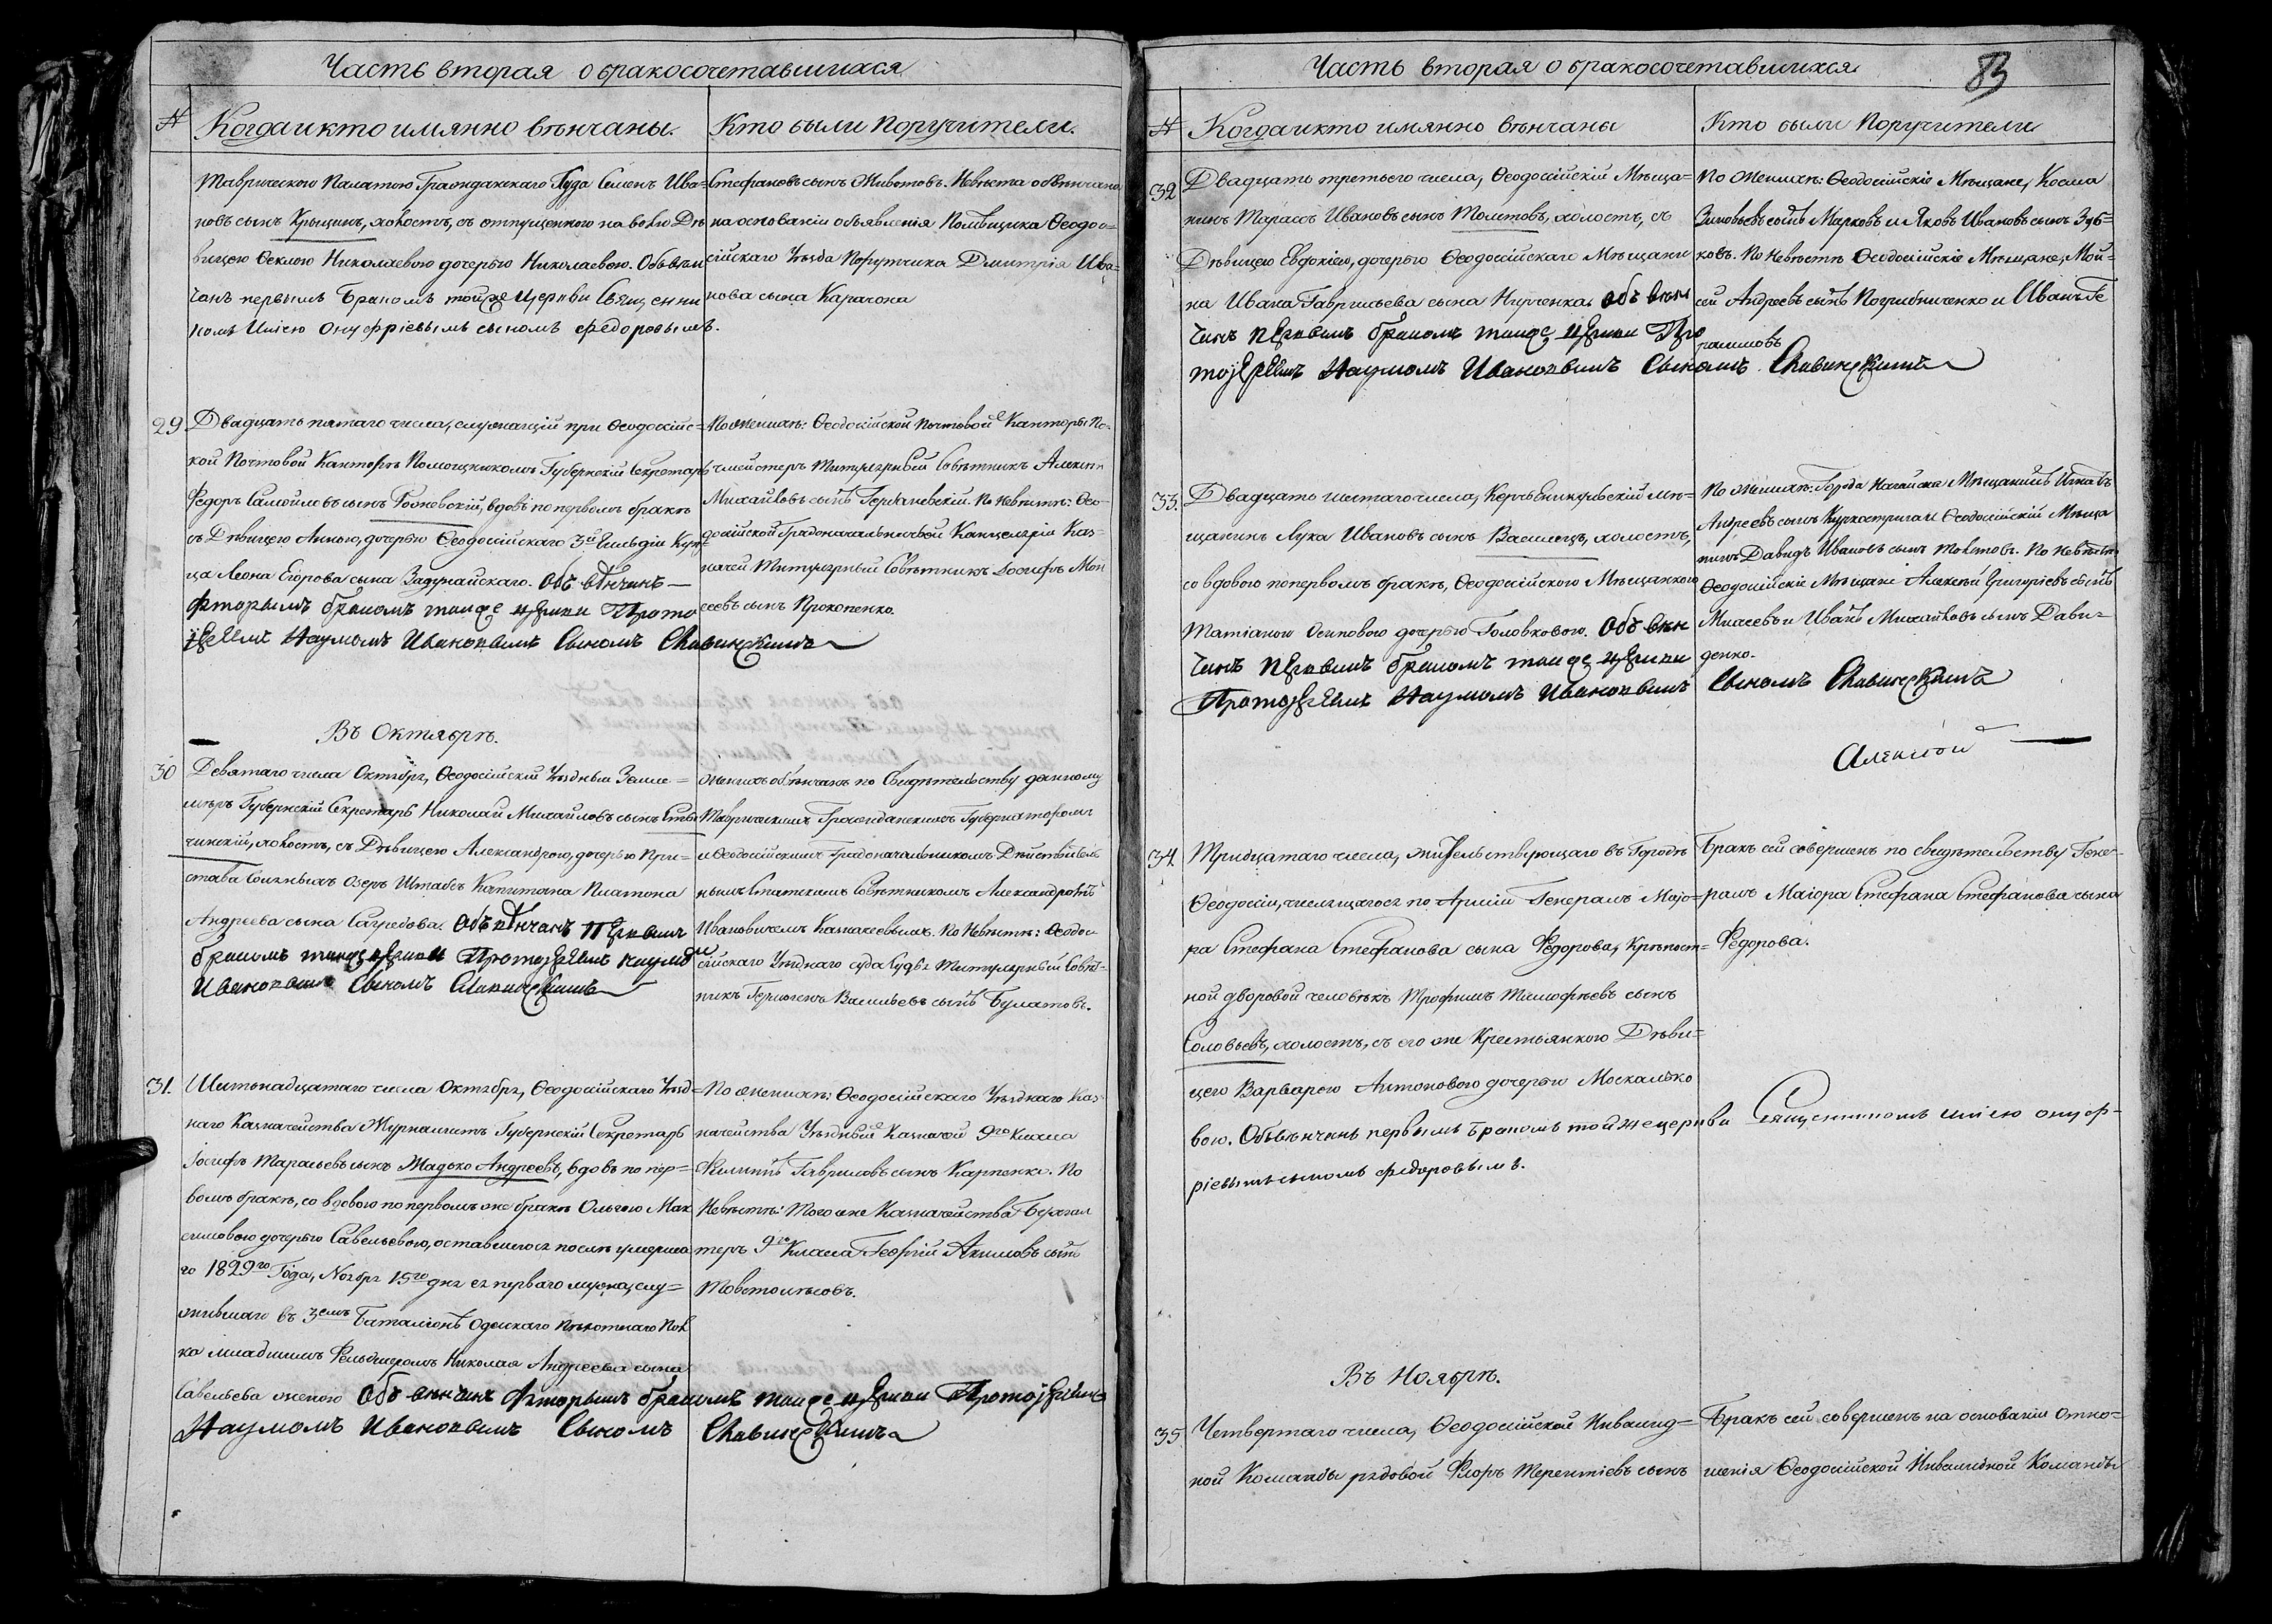 Часть вторая о бракосочетавшихся
№
Когда и кто имянно вѣнчаны.
Кто были Поручители.
Таврическою Палатою Гражданскаго Суда Семенъ Ива=
новъ сынъ Крыцинъ, холостъ, съ отпущенною на волю Дѣ
вицею Ѳеклою Николаевою дочерью Николаевою. Обвѣн
чанъ первымъ бракомъ тойже Церкви Священни
комъ Илiею Онуфрiевымъ сыномъ Федоровымъ.
Стефановъ сынъ Животовъ. Невѣста обвѣнчана
на основанiи объявленiя Помѣщика Ѳеодо=
сiйскаго Уѣзда Порутчика Дмитрiя Ива=
нова сына Карагона
29
Двадцать пятаго числа, служащiй при Ѳеодосiйс=
кой Почтовой Канторѣ Помощникомъ Губернскiй Секретарь
Федоръ Самойловъ сынъ Рожевскiй, вдовъ по первомъ бракѣ
съ Дѣвицею Анною, дочерью Ѳеодосiйскаго 3й Гильдiи Куп=
ца Леона Егорова сына Задунайскаго. Обѣ вѣнчинъ
фторымъ браномъ таиже цҍрки Прото
iереемъ Наумомъ Ивановымъ Сыномъ Славинскимъ
По женихѣ: Ѳеодосiйской Почтовой Канторы По=
чмейстеръ Титулярный Совѣтникъ Алексѣй
Михайловъ сынъ Гербановскiй. По Невѣстѣ: Ѳео=
досiйской Градоначальничьей Канцелярiи Каз=
начей Титулярный Совѣтникъ Iосифъ Мои
сеевъ сынъ Прокопенко.
Въ Октябрѣ.
30
Девятаго числа Октября, Ѳеодосiйскiй Уѣздный Земле=
мѣръ Губернскiй Секретарь Николай Михайловъ сынъ
чинскiй, холостъ, съ Дѣвицею Александрою, дочерью При=
става Соленымъ Озеръ Штабсъ Капитана Платона
Андреева сына Сагредова. Обѣ вѣнчанъ первимъ
браномъ таиже цҍркви Протоiереемъ Наумомъ
Ивановимъ Сыномъ Славинскимъ
Женихъ обвѣнчанъ по Свидѣтельству данному
Таврическимъ Гражданскимъ Губернаторомъ
и Ѳеодосiйскимъ Градоначальникомъ Дѣйствитель
нымъ Статскимъ Совѣтникомъ Александромъ
Ивановичемъ Казначеевымъ. По Невѣстѣ: Ѳеодо
сiйскаго Уѣзднаго суда Судья Титулярный Совѣт=
никъ Гермогенъ Васильевъ сынъ Булатовъ.
31.
Шестьнадцатаго числа Октября, Ѳеодосiйскаго Уѣзд=
наго Казначейства Журналистъ Губернскiй Секретарь
Iосифъ Тарасьевъ сынъ Жадько Андреевъ, вдовъ по пер=
вомъ бракѣ, со вдовою по первомъ же бракѣ Ольгою Мак
симовою дочерью Савельевою, оставшеюся послѣ умерша
го 1829го Года, Ноября 15го дня ея перваго мужа, слу=
жившаго въ 3емъ Баталiонѣ Одесскаго пѣхотнаго Пол
ка младшимъ Фельдшеромъ Николая Андреева сына
Савельева женою Обѣ вѣнчинъ Фторымъ браномъ таиже цҍркви Протоiереемъ
Наумомъ Ивановимъ Сыномъ Славинскимъ
По женихѣ: Ѳеодосiйскаго Уѣзднаго Каз=
начейства Уѣздный Казначей 9го Класса
Филиппъ Гавриловъ сынъ Карпенко. По
Невѣстѣ: Того же Казначейства Бухгал
теръ 9го Класса Георгiй Акимовъ сынъ
Товстолѣсовъ.
Часть вторая о бракосочетавшихся
83
№
Когда и кто имянно вѣнчаны
Кто были Поручители
32
Двадцать третьего числа, Ѳеодосiйскiй Мѣща=
нинъ Тарасъ Ивановъ сынъ Толстовъ, холостъ, съ
Дѣвицею Евдокiею, дочерью Ѳеодосiйскаго Мѣщани
на Ивана Гаврильева сына Ниученка. Обѣ вѣн
чинъ первимъ браномъ таиже цҍркви Про
тоiереемъ Наумомъ Ивановимъ Сыномъ Славинскимъ
По Женихѣ: Ѳеодосiйскiе Мѣщане, Косма
Зиновьевъ сынъ Марковъ и Яковъ Ивановъ сынъ Зуб=
ковъ. По Невѣстѣ Ѳеодосiйскiе Мѣщане, Мой=
сей Андреевъ сынъ Погрибниченко и Иванъ Ге
расимовъ
33.
Двадцать шестаго числа, Керчь Еникульскiй мѣ=
щанинъ Лука Ивановъ сынъ Василецъ, холостъ,
со вдовою по первомъ бракѣ, Ѳеодосiйскою Мѣщанкою
Татiаною Осиповою дочерью Головковою. Обѣ вѣн
чинъ первимъ браномъ таиже цҍркви
Протоiереемъ Наумомъ Ивановимъ Сыномъ Славинскимъ
По женихѣ: Города Нагайска Мѣщанинъ Игнатъ
Андреевъ сынъ Куркострига и Ѳеодосiйскiй Мѣща
нинъ Давидъ Ивановъ сынъ Толстовъ. По Невѣстѣ
Ѳеодосiйскiе Мѣщане Алексѣй Григорiевъ сынъ
Мисеевъ и Иванъ Михайловъ сынъ Дави=
денко.
Алексѣй
34.
Тридцатаго числа, жительствующаго въ Городѣ
Ѳеодосiи, числящагося по Армiи Генералъ Маiо=
ра Стефана Стефанова сына Федорова, Крѣпост=
ной дворовой человѣкъ Трофимъ Тимофѣевъ сынъ
Соловьевъ, холостъ, съ его же Крестьянкою Дѣви=
цею Варварою Антоновою дочерью Москалько
вою. Обвѣнчанъ первымъ бракомъ той же церкви Священникомъ Илiею Онуф=
рiевымъ сыномъ Федоровымъ.
Бракъ сей совершенъ по свидѣтельству Гене=
ралъ Маiора Стефана Стефанова сына
Федорова.
Въ Ноябрѣ.
35
Четвертаго числа, Ѳеодосiйской Инвалид=
ной Команды рядовой Флоръ Терентiевъ сынъ
Бракъ сей совершенъ на основанiи Отно=
шенiя Ѳеодосiйской Инвалидной Команды